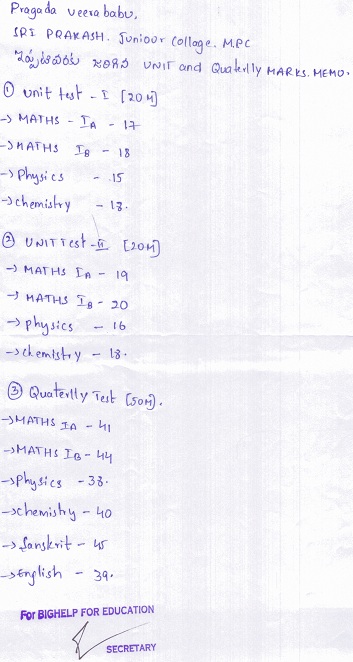 Pragada veerababu,
SRI PRAKASH. Juniour Collage. M.P.C
ఇప్పటివరకు జరిగిన UNIT and Quaterlly MARKS. MEMO.
① unit test - I [20M]
→ MATHS - IA - 17
→ MATHS IB - 18
→ Physics - 15
→ chemistry - 18.
② UNIT Test - II [20M]
→ MATHS IA - 19
→ MATHS IB - 20
→ physics - 16
→ chemistry - 18.
③ Quaterlly Test [50M].
→ MATHS IA - 41
→ MATHS IB - 44
→ physics - 38.
→ chemistry - 40
→ Sanskrit - 45
→ English - 39.
For BIGHELP FOR EDUCATION
SECRETARY